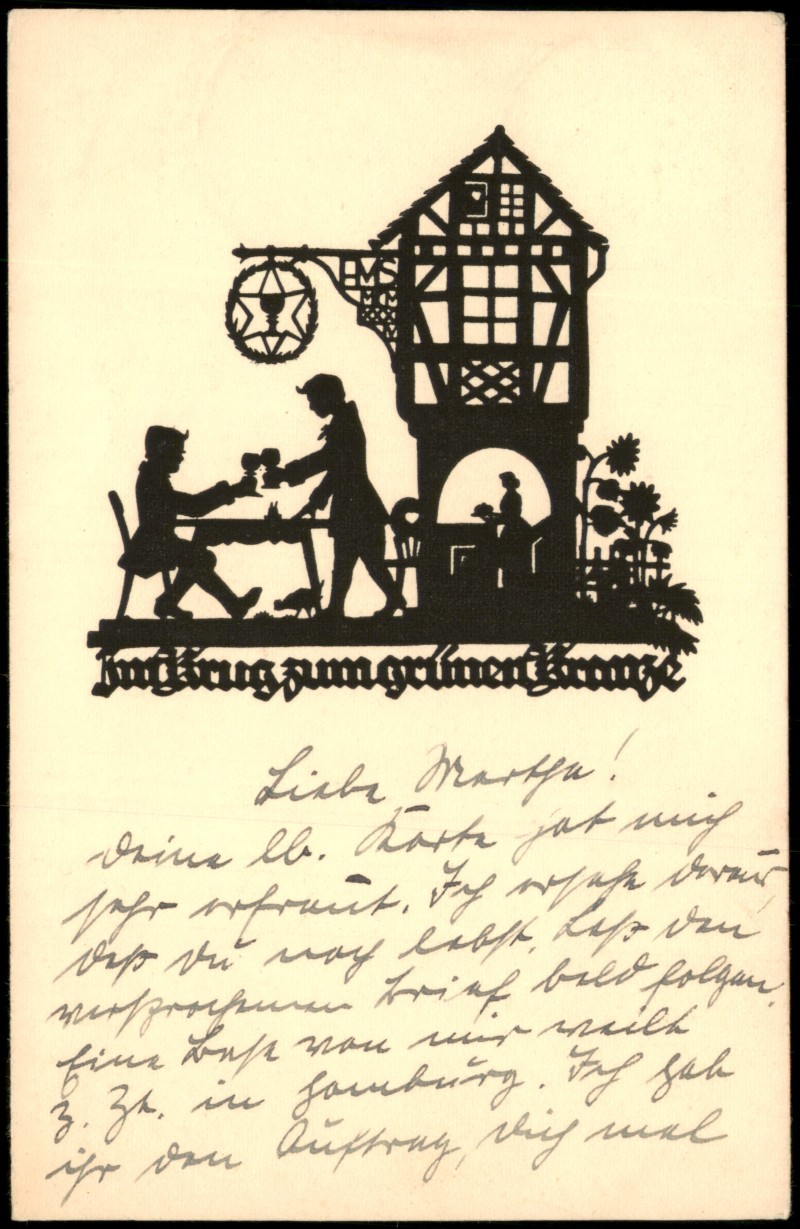 EMS
Im Krug zum grünen Kranze
Liebe Martha!
Deine lb. Karte hat mich
sehr erfreut. Ich ersehe daraus,
daß Du noch lebst. Laß den
versprochenen Brief bald folgen.
Eine Base von mir weilt
z. Zt. in Hamburg. Ich gab
ihr den Auftrag, Dich mal